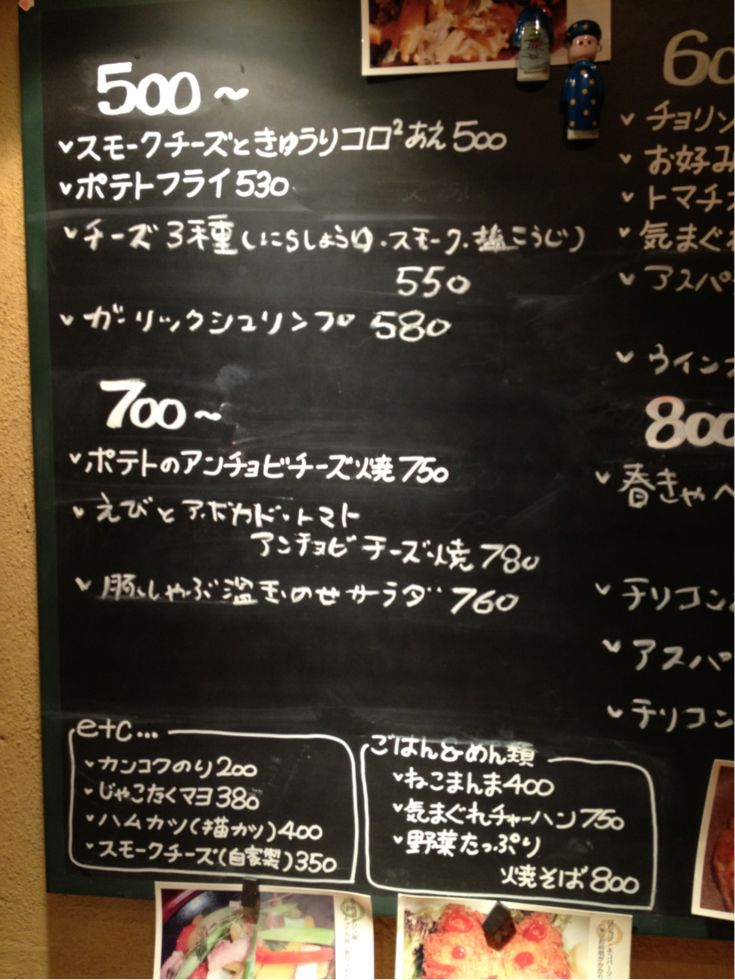 500～
スモークチーズときゅうりコロ²あえ500
ポテトフライ530
チーズ3種(にらしょうゆ・スモーク・塩こうじ)
550
ガーリックシュリンプ 580
700～
ポテトのアンチョビチーズ焼750
えびとアボカド・トマト
アンチョビチーズ焼780
豚しゃぶ温玉のせサラダ 760
60
チョリソ
お好み
トマチ
気まぐれ
アスパ
ウイン
800
春きゃべ
チリコン
アスパ
チリコン
etc...
カンコクのり200
じゃこたくマヨ380
ハムカツ(猫カツ)400
スモークチーズ(自家製)350
ごはん&めん類
ねこまんま400
気まぐれチャーハン750
野菜たっぷり
焼そば800